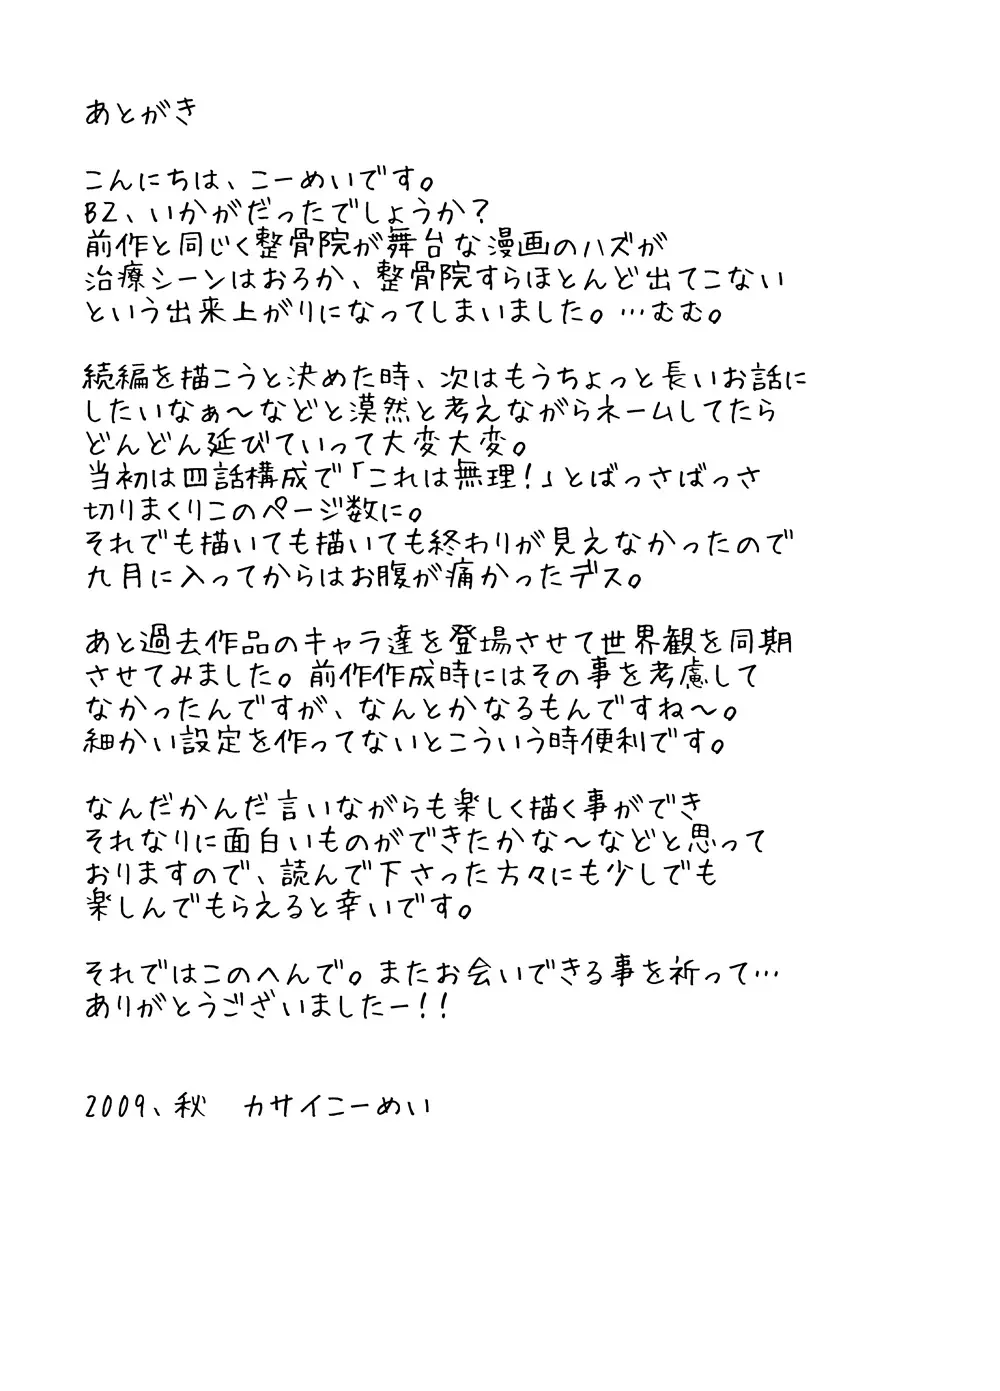 あとがき
こんにちは、こーめいです。
B2、いかがだったでしょうか？
前作と同じく整骨院が舞台な漫画のハズが
治療シーンはおろか、整骨院すらほとんど出てこない
という出来上がりになってしまいました。…むむ。
続編を描こうと決めた時、次はもうちょっと長いお話に
したいなぁ～などと漠然と考えながらネームしてたら
どんどん延びていって大変大変。
当初は四話構成で「これは無理！」とばっさばっさ
切りまくりこのページ数に。
それでも描いても描いても終わりが見えなかったので
九月に入ってからはお腹が痛かったデス。
あと過去作品のキャラ達を登場させて世界観を同期
させてみました。前作作成時にはその事を考慮して
なかったんですが、なんとかなるもんですね～。
細かい設定を作ってないとこういう時便利です。
なんだかんだ言いながらも楽しく描く事ができ
それなりに面白いものができたかな～などと思って
おりますので、読んで下さった方々にも少しでも
楽しんでもらえると幸いです。
それではこのへんで。またお会いできる事を祈って…
ありがとうございましたー！！
2009、秋　カサイこーめい